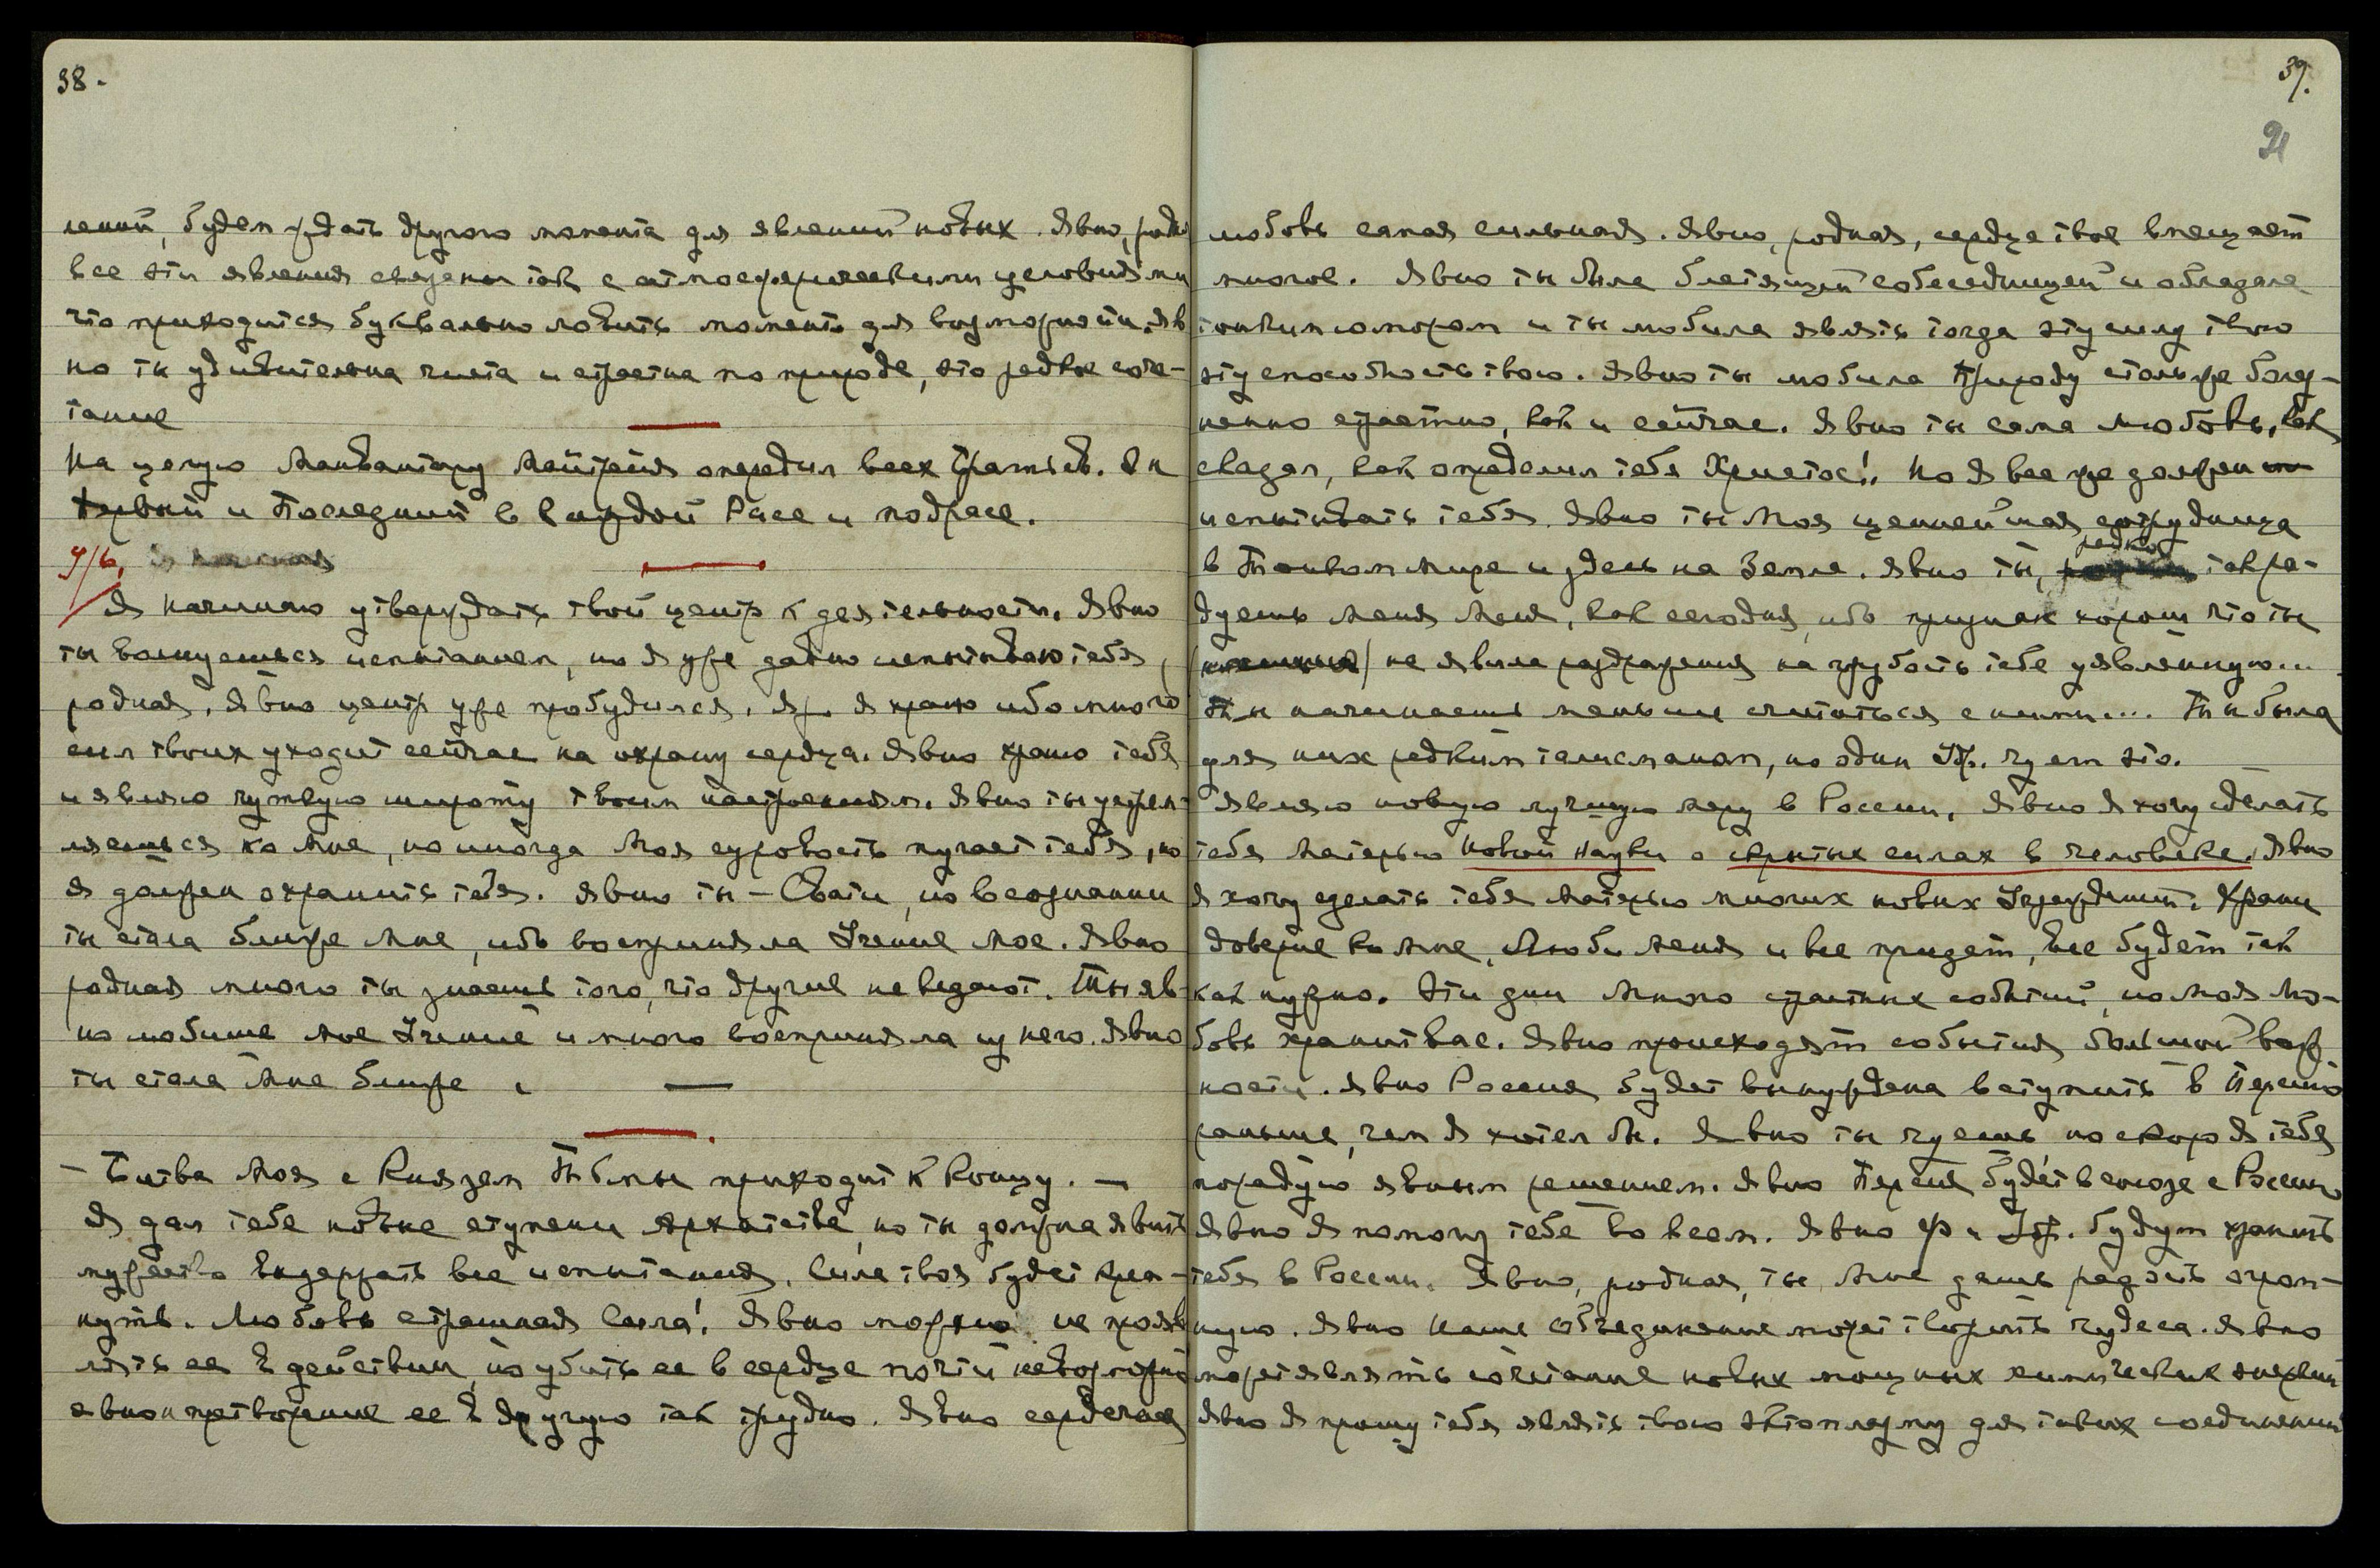 38.
лений, будем ждать другого момента для явлений новых. Явно, родн
все эти явления связаны так с атмосферическими условиями
что приходится буквально ловить моменты для возможности. Яв
но ты удивительна чиста и страстна по природе, это редкое соче-
тание
На целую Манвантару Майтрейя опередил всех Братьев. Он
Первый и Последний в каждой Расе и подрасе.
9/6.
Я начинаю утверждать твой центр к деятельности. Явно
ты волнуешься испытанием, но я уже давно испытываю тебя,
родная. Явно центр уже пробудился. Я храню ибо много
сил твоих уходит сейчас на охрану сердца. Явно храню тебя
и являю чуткую широту твоим настроениям. Явно ты устрем-
ляешься ко Мне, но иногда Моя суровость пугает тебя, но
Я должен охранить тебя. Явно ты – Свати, но в сознании
ты стала ближе Мне, ибо восприняла Учение Мое. Явно
родная много ты знаешь того, что другие не ведают. Ты яв-
но любишь Мое Учение и много восприняла из него. Явно
ты стала Мне ближе. —
– Битва Моя с Князем Тьмы приходит к концу. –
Я дал тебе новые ступени Архатства, но ты должна явить
мужество выдержать все испытания. Сила твоя будет креп-
нуть. Любовь страшная Сила! Явно можно не прояв
лять ее в действии, но убить ее в сердце почти невозможно
явно претворение ее в другую так трудно. Явно сердечная
39.
21
любовь самая сильная. Явно, родная, сердце твое вмещает
многое. Явно ты была блестящей собеседницей и обладала
тонким юмором и ты любила являть тогда эту силу твою
эту способность твою. Явно ты любила Природу столь же болез-
ненно страстно, как и сейчас. Явно ты сама Любовь, как
сказал, как определил тебя Христос!. Но Я все же должен
испытывать тебя. Явно ты Моя ценнейшая сотрудница
в Тонком Мире и здесь на Земле. Явно ты, редко так ра-
дуешь Меня Меня, как сегодня, ибо признак хорош что ты
не явила раздражения на грубость тебе уявленную...
Ты начинаешь меньше считаться с ними.... Ты была
для них редким талисманом, но один Юр. чует это.
Являю новую лучшую меру в России. Явно Я хочу сделать
тебя Матерью Новой Науки о скрытых силах в человеке. Явно
Я хочу сделать тебя Матерью многих новых Учреждений. Храни
доверие ко Мне, Люби Меня и все придет, все будет так
как нужно. Эти дни много страшных событий, но Моя Лю-
бовь хранит вас. Явно происходят события большой важ
ности. Явно Россия будет вынуждена вступить в Персию
раньше, чем Я хотел бы. Явно ты чуешь но скоро Я тебя
порадую явным решением. Явно Персия будет в союзе с Россией
Явно Я помогу тебе во всем. Явно Ф и Юр. будут хранить
тебя в России. Явно, родная, ты Мне дашь радость огром-
ную. Явно Наше объединение может творить чудеса. Явно
может являть сочетание новых мощных химических энергий
Явно Я прошу тебя являть твою эктоплазму для таких соединений